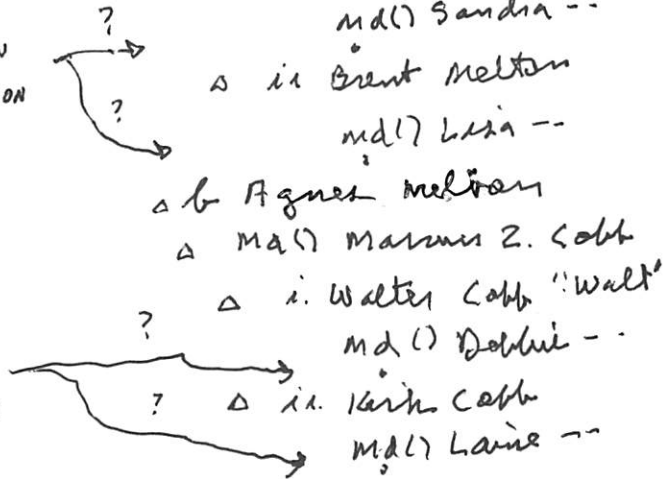 ? md() Sandra --
ON
△ ii Brent Melton
? md() Lisa --
△ b Agnes Melton
△ Md() Marcus Z. Cobb
△ i. Walter Cobb "Walt"
? md () Debbie --
? △ ii. Kirk Cobb
md() Laine --